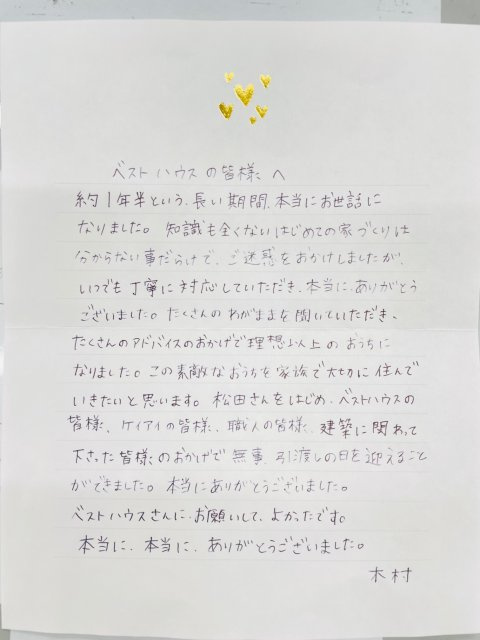 ベストハウスの皆様へ
約1年半という、長い期間、本当にお世話に
なりました。知識も全くないはじめての家づくりは
分からない事だらけで、ご迷惑をおかけしましたが、
いつでも丁寧に対応していただき、本当に、ありがとう
ございました。たくさんのわがままを聞いていただき、
たくさんのアドバイスのおかげで理想以上のおうちに
なりました。この素敵なおうちを家族で大切に住んで
いきたいと思います。松田さんをはじめ、ベストハウスの
皆様、ケイアイの皆様、職人の皆様、建築に関わって
下さった皆様のおかげで無事、引渡しの日を迎えること
ができました。本当にありがとうございました。
ベストハウスさんに、お願いして、よかったです。
本当に、本当に、ありがとうございました。
木村